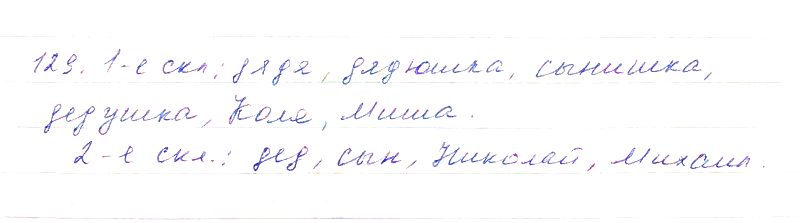 129. 1-е скл.: дядя, дядюшка, сынишка,
дедушка, Коля, Миша.
2-е скл.: дед, сын, Николай, Михаил.